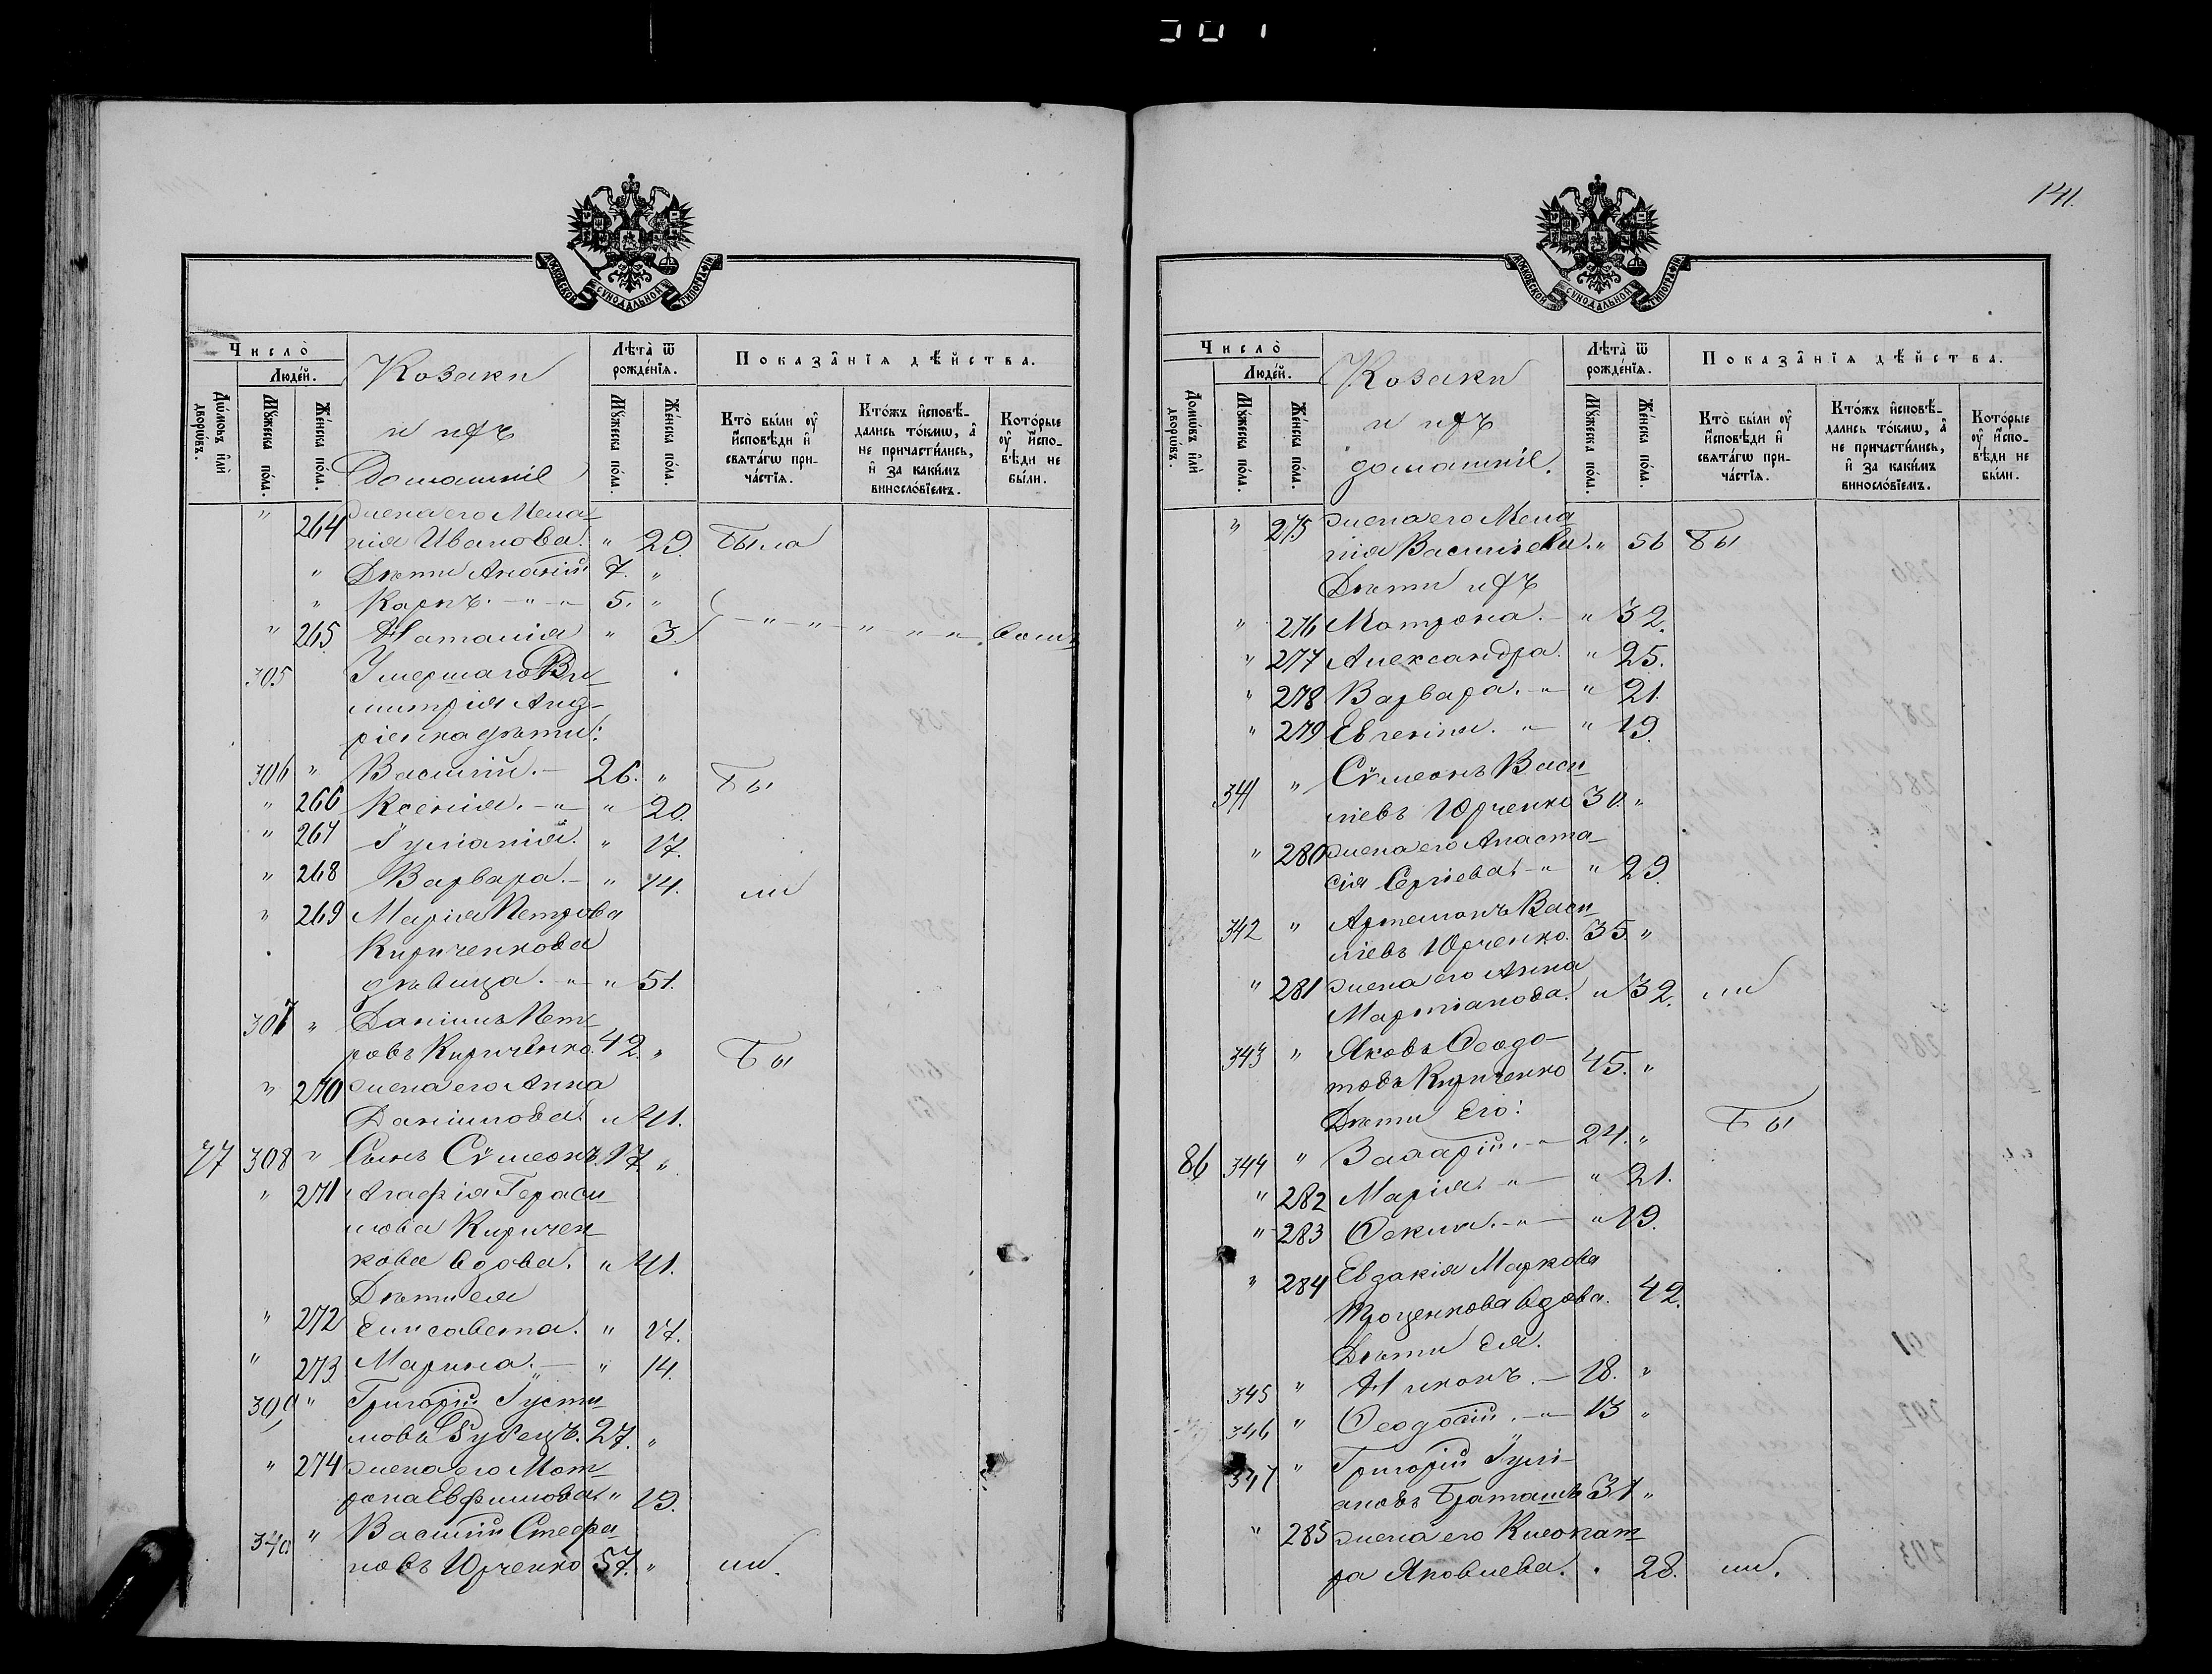 301
МОСКОВСКОЙ СѴНОДАЛЬНОЙ ТИПОГРАФІИ
Число̀
Люде́й.
Домѡ́въ и҆лѝ дворѡ́въ.
Мꙋ́жеска по́ла.
Же́нска по́ла.
Козаки
и ихъ
Домашніе
Лѣта̀ ѿ рожде́нїѧ.
Мꙋ́жеска по́ла.
Же́нска по́ла.
Показа̑нїѧ дѣ́йства.
Кто̀ бы́ли ᲂу҆ и҆сповѣди и҆ свѧта́гѡ причастїѧ.
Кто́жъ и҆сповѣ́дались то́кмѡ, а҆ не причасти́лись, и҆ за каки́мъ винослові́емъ.
Кото́рые ᲂу҆ и҆сповѣди не бы́ли.
" 264 жена его Мела-
нія Иванова. " 29. Была
" Дѣти Ананій 7. "
" Карпъ. - " - " 5. "
" 265 Наталія " 3. - " - " - " - " - "
305 Умершаго Ди-
митрія Анд-
ріенка дѣти:
306 " Василій. - 26. " Бы
" 266 Ксенія. - " " 20.
" 267 Іуліанія. " 17.
" 268 Варвара. - " 14. ли
" 269 Марія Петрова
Кириченкова
дѣвица. - " " 51.
307 " Даніилъ Пет-
ровъ Кириченко. 42. " Бы
" 270 жена его Анна
Даніилова. " 41.
77 308 " Сынъ Сѵмеонъ. 17. "
" 271 Агафія Гераси-
мова Киричен-
кова вдова. " 41.
Дѣти ея
" 272 Елисавета. " 17.
" 273 Марина. - " 14.
309 " Григорій Іусти-
новъ Рубецъ. 27. "
" 274 жена его Мат-
рона Евфимова. " 19.
340 " Василій Стефа-
новъ Юрченко 57. " ли.
141.
МОСКОВСКОЙ СѴНОДАЛЬНОЙ ТИПОГРАФІИ
Число̀
Люде́й.
Домѡ́въ и҆лѝ дворѡ́въ.
Мꙋ́жеска по́ла.
Же́нска по́ла.
Козаки
и ихъ
домашніе.
Лѣта̀ ѿ рожде́нїѧ.
Мꙋ́жеска по́ла.
Же́нска по́ла.
Показа̑нїѧ дѣ́йства.
Кто̀ бы́ли ᲂу҆ и҆сповѣди и҆ свѧта́гѡ причастїѧ.
Кто́жъ и҆сповѣ́дались то́кмѡ, а҆ не причасти́лись, и҆ за каки́мъ винослові́емъ.
Кото́рые ᲂу҆ и҆сповѣди не бы́ли.
" 275 жена его Мела-
нія Василіева. " 56 Бы
Дѣти ихъ
" 276 Матрона. - " 32.
" 277 Александра. " 25.
" 278 Варвара. - " " 21.
" 279 Евгенія. " - " 19.
341 " Сѵмеонъ Васи-
ліевъ Юрченко 30. "
" 280 жена его Анаста-
сія Сергіева. - " " 29.
342 " Артемонъ Васи-
ліевъ Юрченко. 35. "
" 281 жена его Анна
Мартіанова. " 32. ли
343 " Яковъ Ѳеодо-
товъ Кириченко 45. "
Дѣти его: Бы
86 344 " Захарій. - " 24. "
" 282 Марія. - " - " 21.
" 283 Ѳекла. - " - " 19.
" 284 Евдокія Маркова
Троценкова вдова. 42.
Дѣти Ея.
345 " Никонъ. - 18. "
346 " Ѳеодосій. - " 13 "
347 " Григорій Іулі-
ановъ Браташъ 31 "
" 285 жена его Клеопат-
ра Яковлева. " 28. ли.